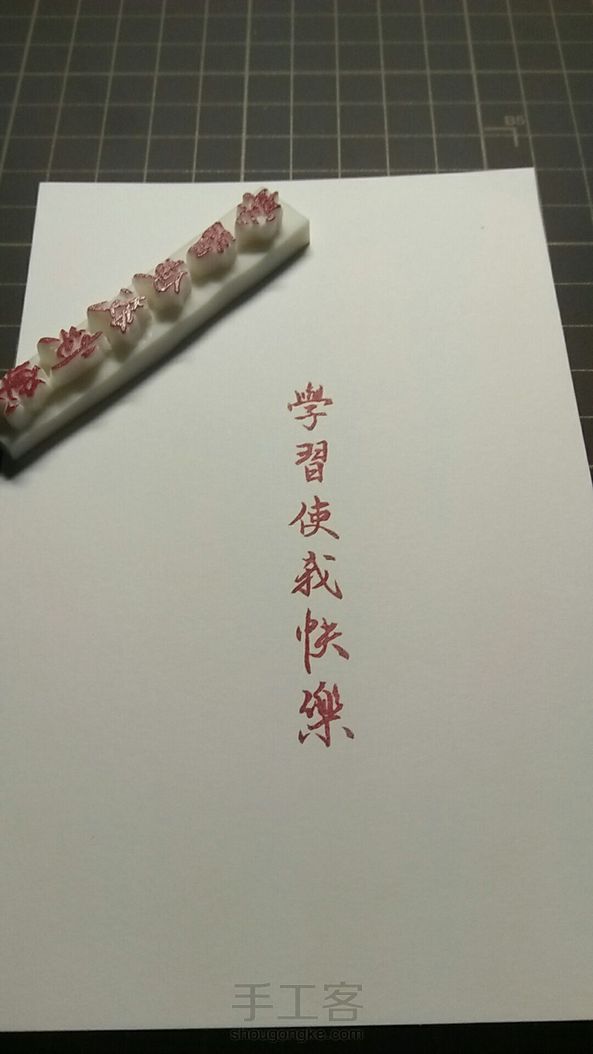 B5
學習使我快樂
手工客
shougongke.com